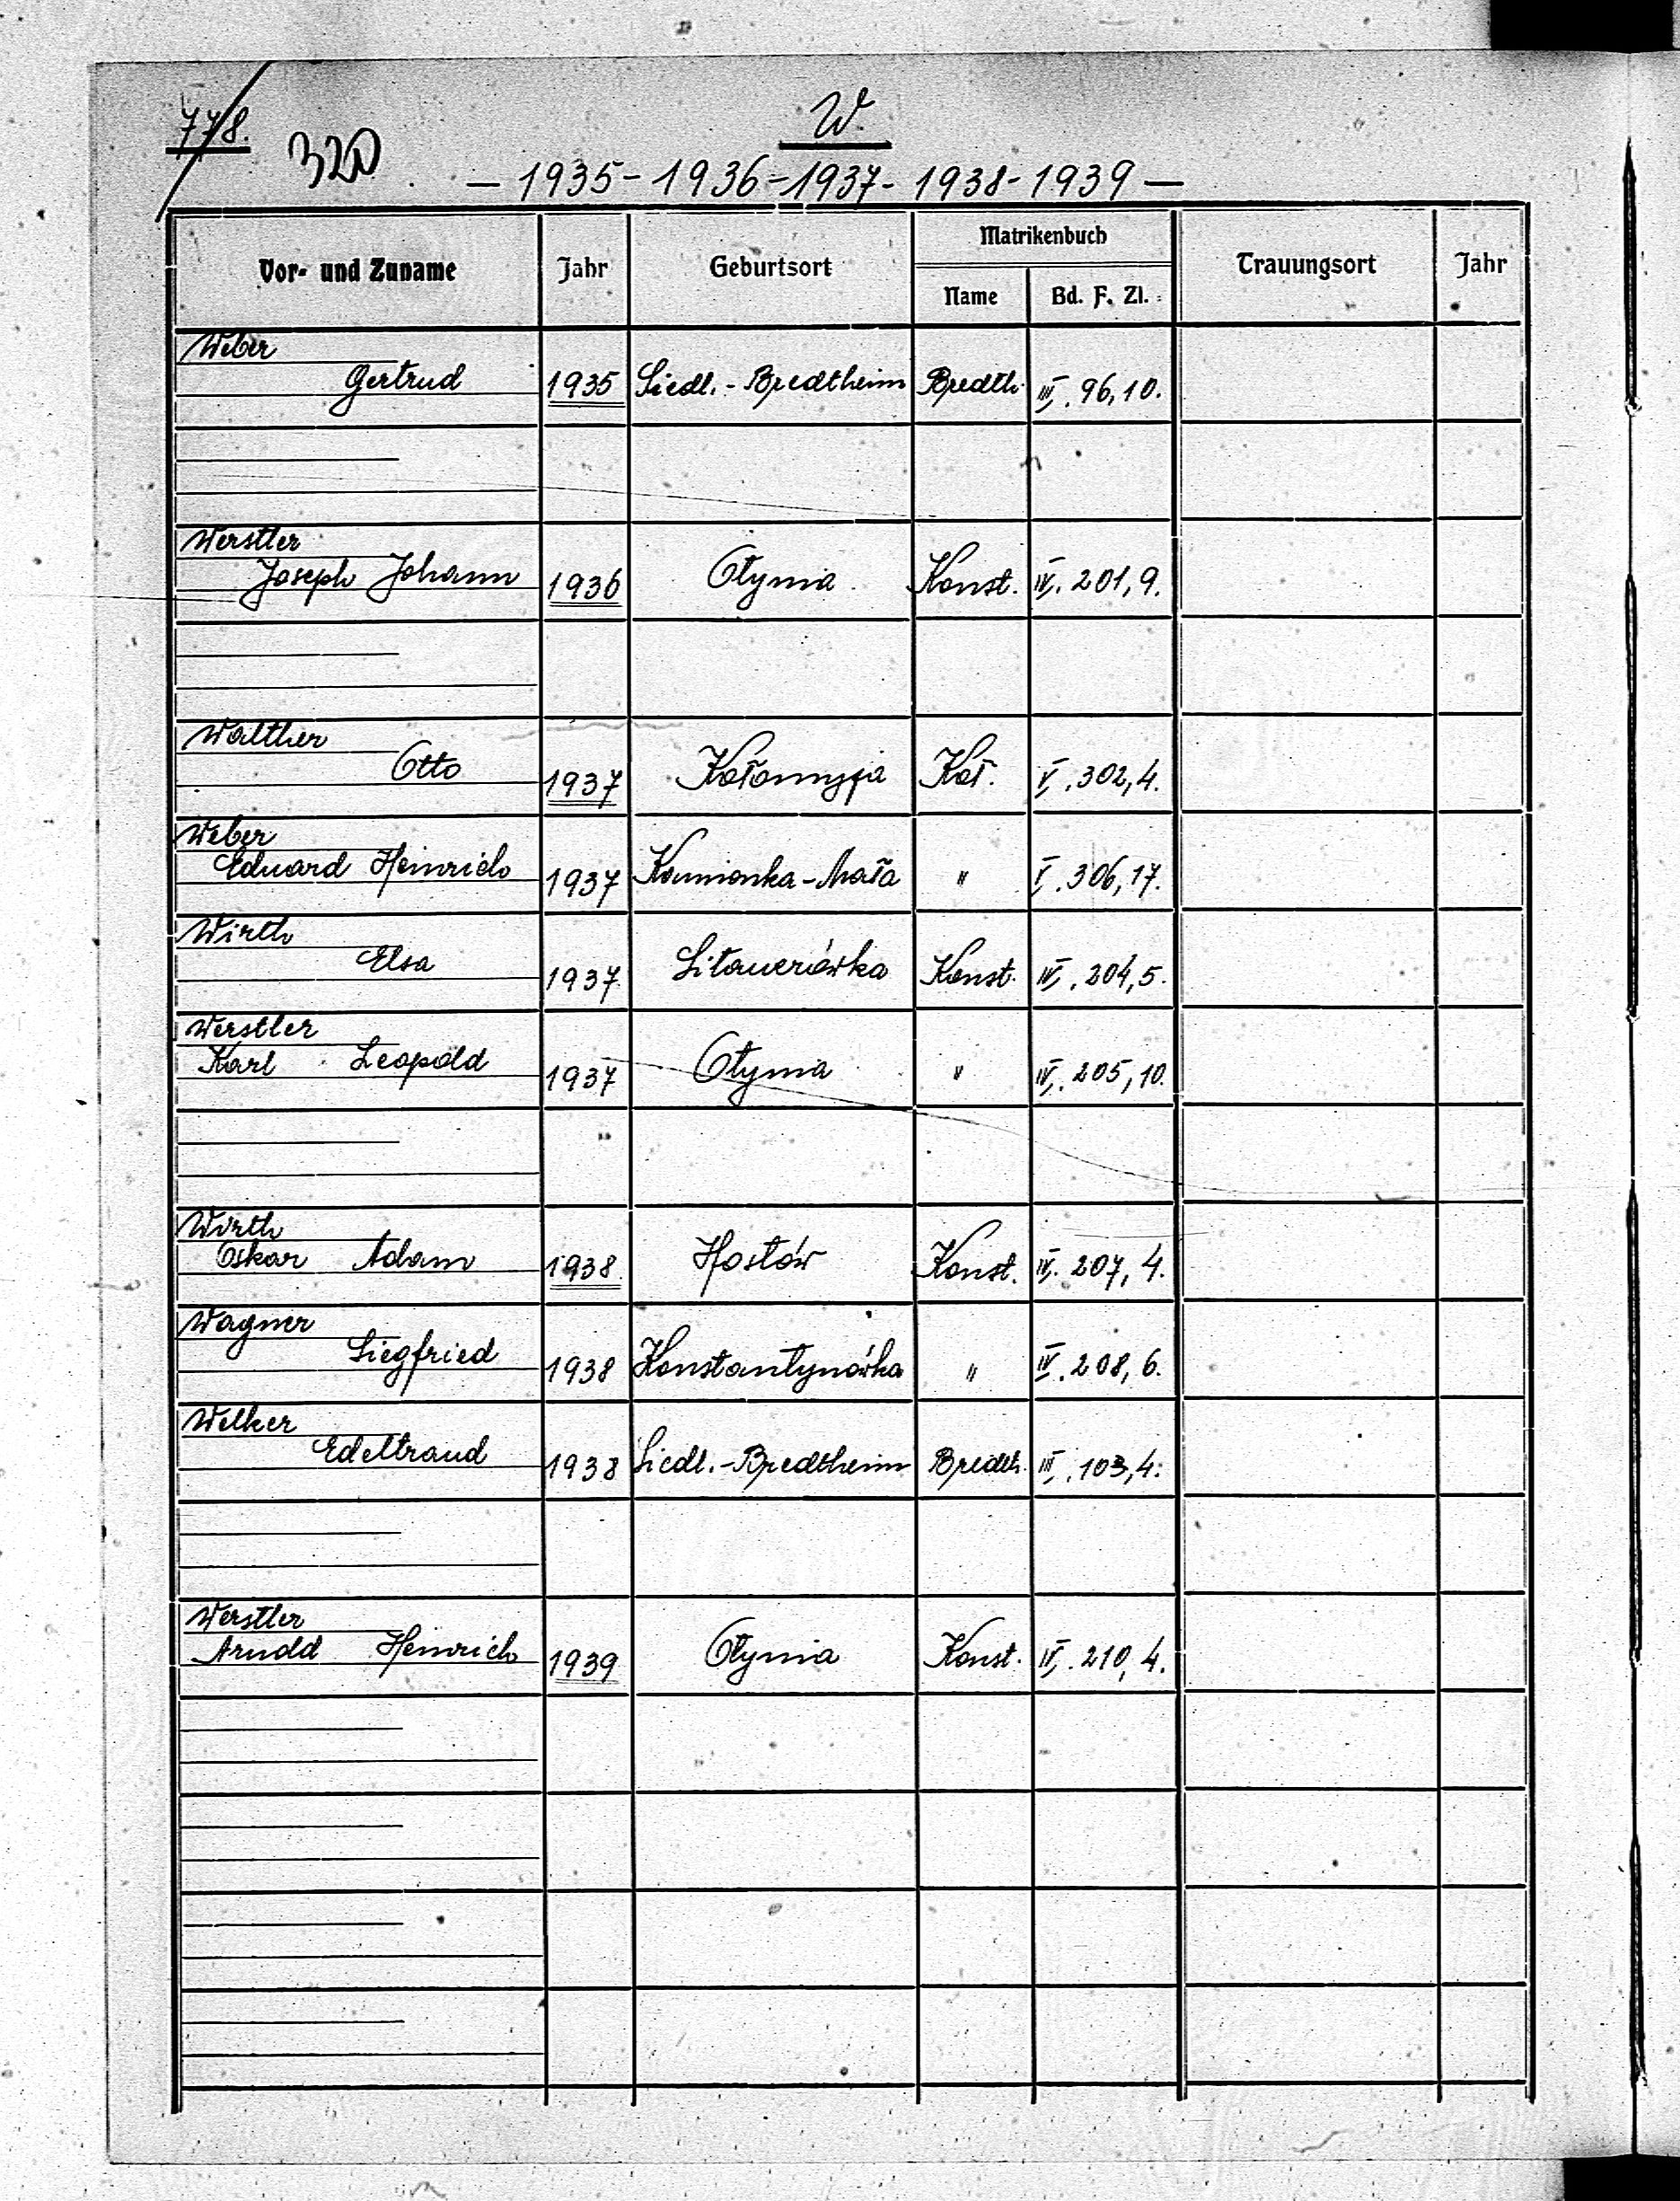 778.
320
W.
— 1935 - 1936 - 1937 - 1938 - 1939 —
Vor- und Zuname Jahr Geburtsort Matrikenbuch Trauungsort Jahr
Name Bd. F. Zl.
Weber
Gertrud 1935 Siedl.-Bredtheim Bredth. III. 96, 10.
Werstler
Joseph Johann 1936 Otynia Konst. IV. 201, 9.
Walther
Otto 1937 Kołomyja Koł. V. 302, 4.
Weber
Eduard Heinrich 1937 Kamionka-Mała " V. 306, 17.
Wirth
Elsa 1937 Sitauerówka Konst. IV. 204, 5.
Werstler
Karl Leopold 1937 Otynia " IV. 205, 10.
Wirth
Oskar Adam 1938 Hostów Konst. IV. 207, 4.
Wagner
Siegfried 1938 Konstantynówka " IV. 208, 6.
Welker
Edeltraud 1938 Siedl.-Bredtheim Bredth. III. 103, 4.
Werstler
Arnold Heinrich 1939 Otynia Konst. IV. 210, 4.